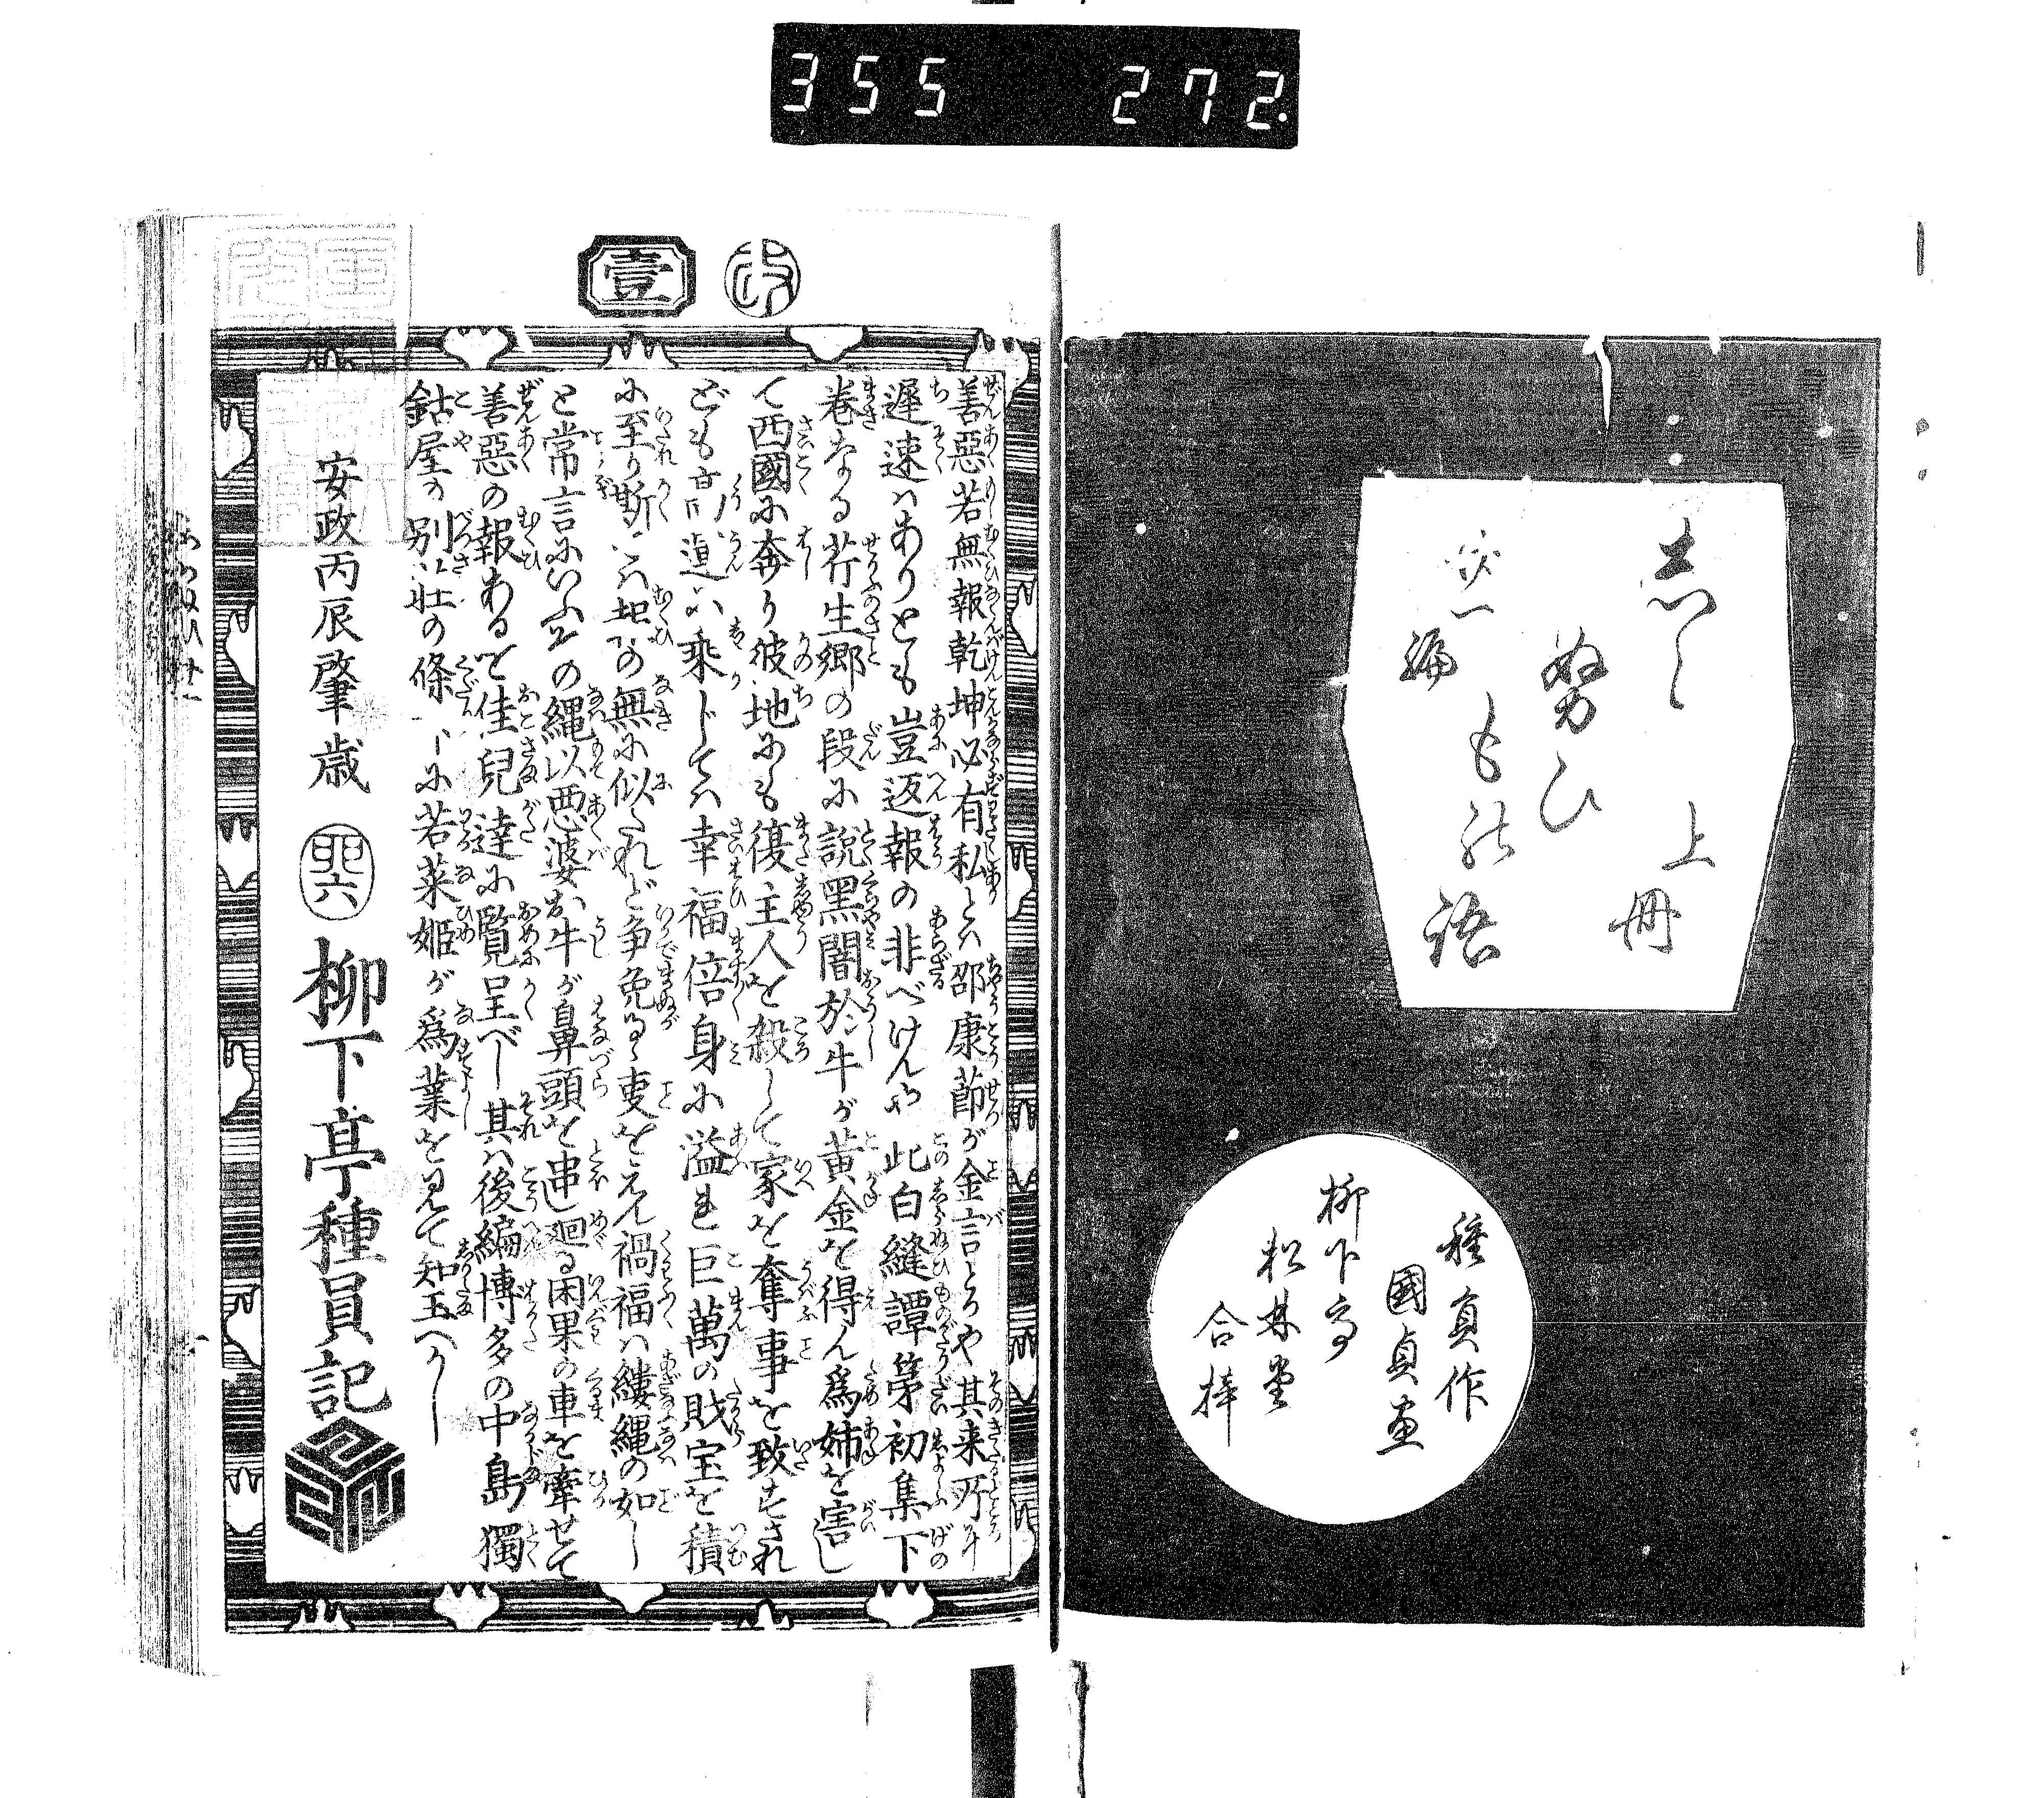 355 272
志らぬひ
もの語
廿一編
上冊
種員作
國貞画
柳下亭
松林堂
合梓
改
壹
善惡若無報乾坤必有私とは邵康節が金言とかや其来所に
遅速はありとも豈返報の非べけんや此白縫譚第初集下
巻なる芹生郷の段に説黑闇於牛が黄金を得ん爲姉を害し
て西國に奔り彼地にも復主人を殺して家を奪事を致すされ
ども
乗じては幸福倍身に溢れ巨萬の財宝を積
に至り斯は報ひの無に似たれど争免るゝ事をえん禍福は縷縄の如し
と常言にいふ其の縄以悪婆お牛が鼻頭を串し廻る因果の車を牽せて
善惡の報あるを佳兒達に覧呈べし其は後編博多の中島獨
鈷屋の別荘の條下に若菜姫が爲業を見て知玉へかし
安政丙辰肇歳
柳下亭種員記